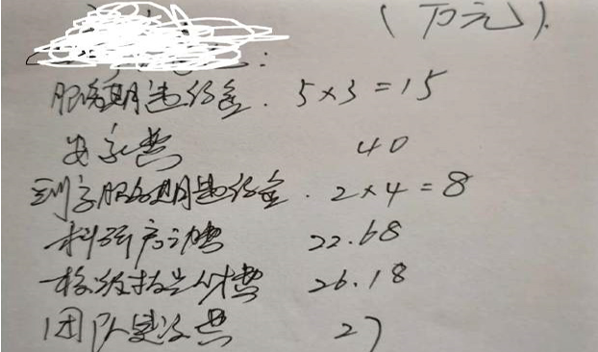 (万元).
服务期违约金. 5×3=15
安家费 40
到字服务期违约金. 2×4=8
科研启动费 22.68
校级择岀人才费 26.18
团队建设费 27